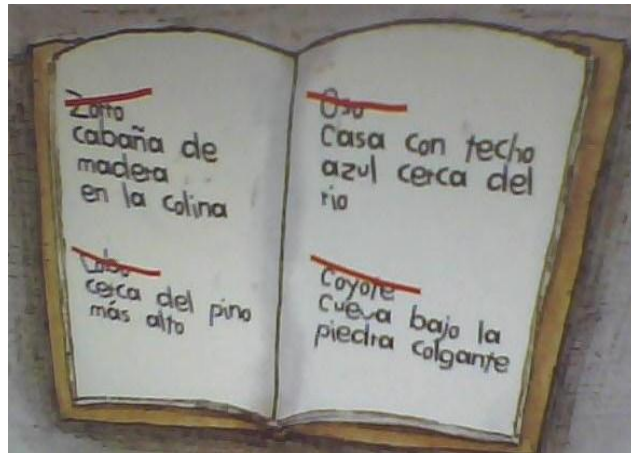 Zorro
cabaña de
madera
en la colina
Lobo
cerca del pino
más alto
Oso
Casa con techo
azul cerca del
rio
Coyote
Cueva bajo la
piedra colgante